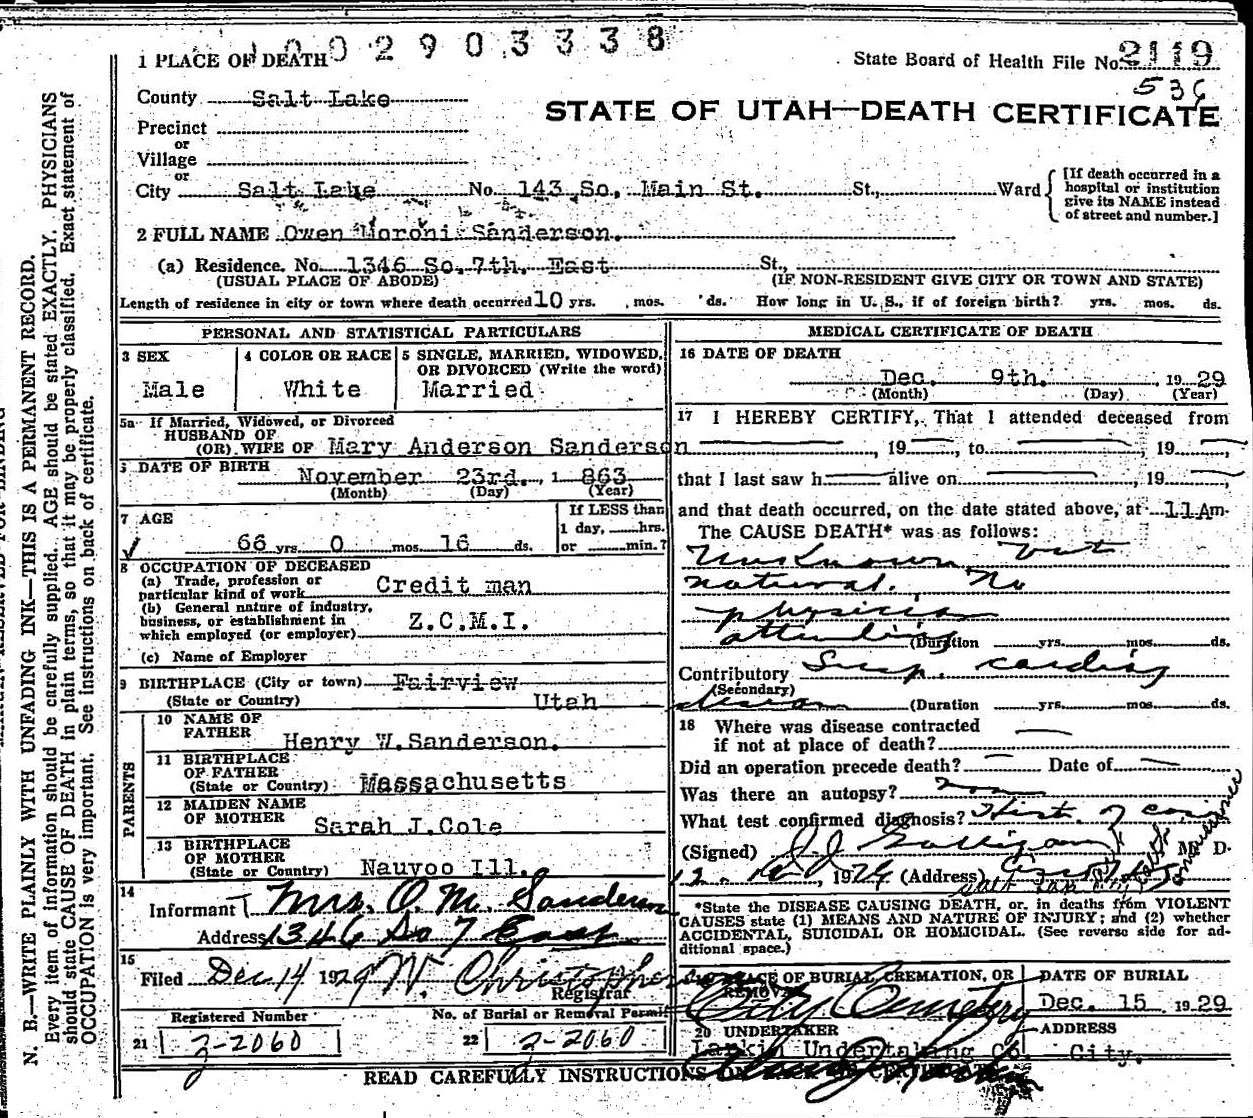 1002903338
1 PLACE OF DEATH
State Board of Health File No. 2119
536
County Salt Lake
STATE OF UTAH—DEATH CERTIFICATE
Precinct
or
Village
or
City Salt Lake No. 143 So. Main St. St., Ward
[If death occurred in a
hospital or institution
give its NAME instead
of street and number.]
2 FULL NAME Owen Moroni Sanderson.
(a) Residence. No. 1346 So. 7th. East St.,
(USUAL PLACE OF ABODE) (IF NON-RESIDENT GIVE CITY OR TOWN AND STATE)
Length of residence in city or town where death occurred 10 yrs. mos. ds. How long in U. S., if of foreign birth? yrs. mos. ds.
PERSONAL AND STATISTICAL PARTICULARS
3 SEX
Male
4 COLOR OR RACE
White
5 SINGLE, MARRIED, WIDOWED,
OR DIVORCED (Write the word)
Married
5a If Married, Widowed, or Divorced
HUSBAND OF
(OR) WIFE OF Mary Anderson Sanderson
DATE OF BIRTH
November 23rd., 1 863
(Month) (Day) (Year)
7 AGE
66 yrs. 0 mos. 16 ds.
If LESS than
1 day, hrs.
or min.?
8 OCCUPATION OF DECEASED
(a) Trade, profession or
particular kind of work Credit man
(b) General nature of industry,
business, or establishment in
which employed (or employer) Z.C.M.I.
(c) Name of Employer
9 BIRTHPLACE (City or town) Fairview
(State or Country) Utah
PARENTS
10 NAME OF
FATHER Henry W.Sanderson.
11 BIRTHPLACE
OF FATHER
(State or Country) Massachusetts
12 MAIDEN NAME
OF MOTHER Sarah J.Cole
13 BIRTHPLACE
OF MOTHER
(State or Country) Nauvoo Ill.
14
Informant Mrs. O. M. Sanderson
Address 1346 So 7 East
15
Filed Dec 14 1929 W. Christopherson
Registrar
Registered Number
21 2-2060
No. of Burial or Removal Permit
22 2-2060
MEDICAL CERTIFICATE OF DEATH
16 DATE OF DEATH
Dec. 9th. 19 29
(Month) (Day) (Year)
17 I HEREBY CERTIFY, That I attended deceased from
, 19 , to , 19
that I last saw h alive on , 19
and that death occurred, on the date stated above, at 11 Am.
The CAUSE DEATH* was as follows:
Unknown but
natural. No
physician
attending
(Duration yrs. mos. ds.
Contributory Susp. cardiac
(Secondary)
disease (Duration yrs. mos. ds.
18 Where was disease contracted
if not at place of death?
Did an operation precede death? Date of
Was there an autopsy?
What test confirmed diagnosis? Hist. of
(Signed) J J Galligan M. D.
12. 10, 1929 (Address)
*State the DISEASE CAUSING DEATH, or, in deaths from VIOLENT
CAUSES state (1) MEANS AND NATURE OF INJURY; and (2) whether
ACCIDENTAL, SUICIDAL OR HOMICIDAL. (See reverse side for ad-
ditional space.)
PLACE OF BURIAL, CREMATION, OR
REMOVAL
City Cemetery
DATE OF BURIAL
Dec. 15 19 29
20 UNDERTAKER
Larkin Undertaking Co.
ADDRESS
City.
READ CAREFULLY INSTRUCTIONS ON CERTIFICATE
N. B.—WRITE PLAINLY WITH UNFADING INK—THIS IS A PERMANENT RECORD.
Every item of information should be carefully supplied. AGE should be stated EXACTLY. PHYSICIANS
should state CAUSE OF DEATH in plain terms, so that it may be properly classified. Exact statement of
OCCUPATION is very important. See instructions on back of certificate.